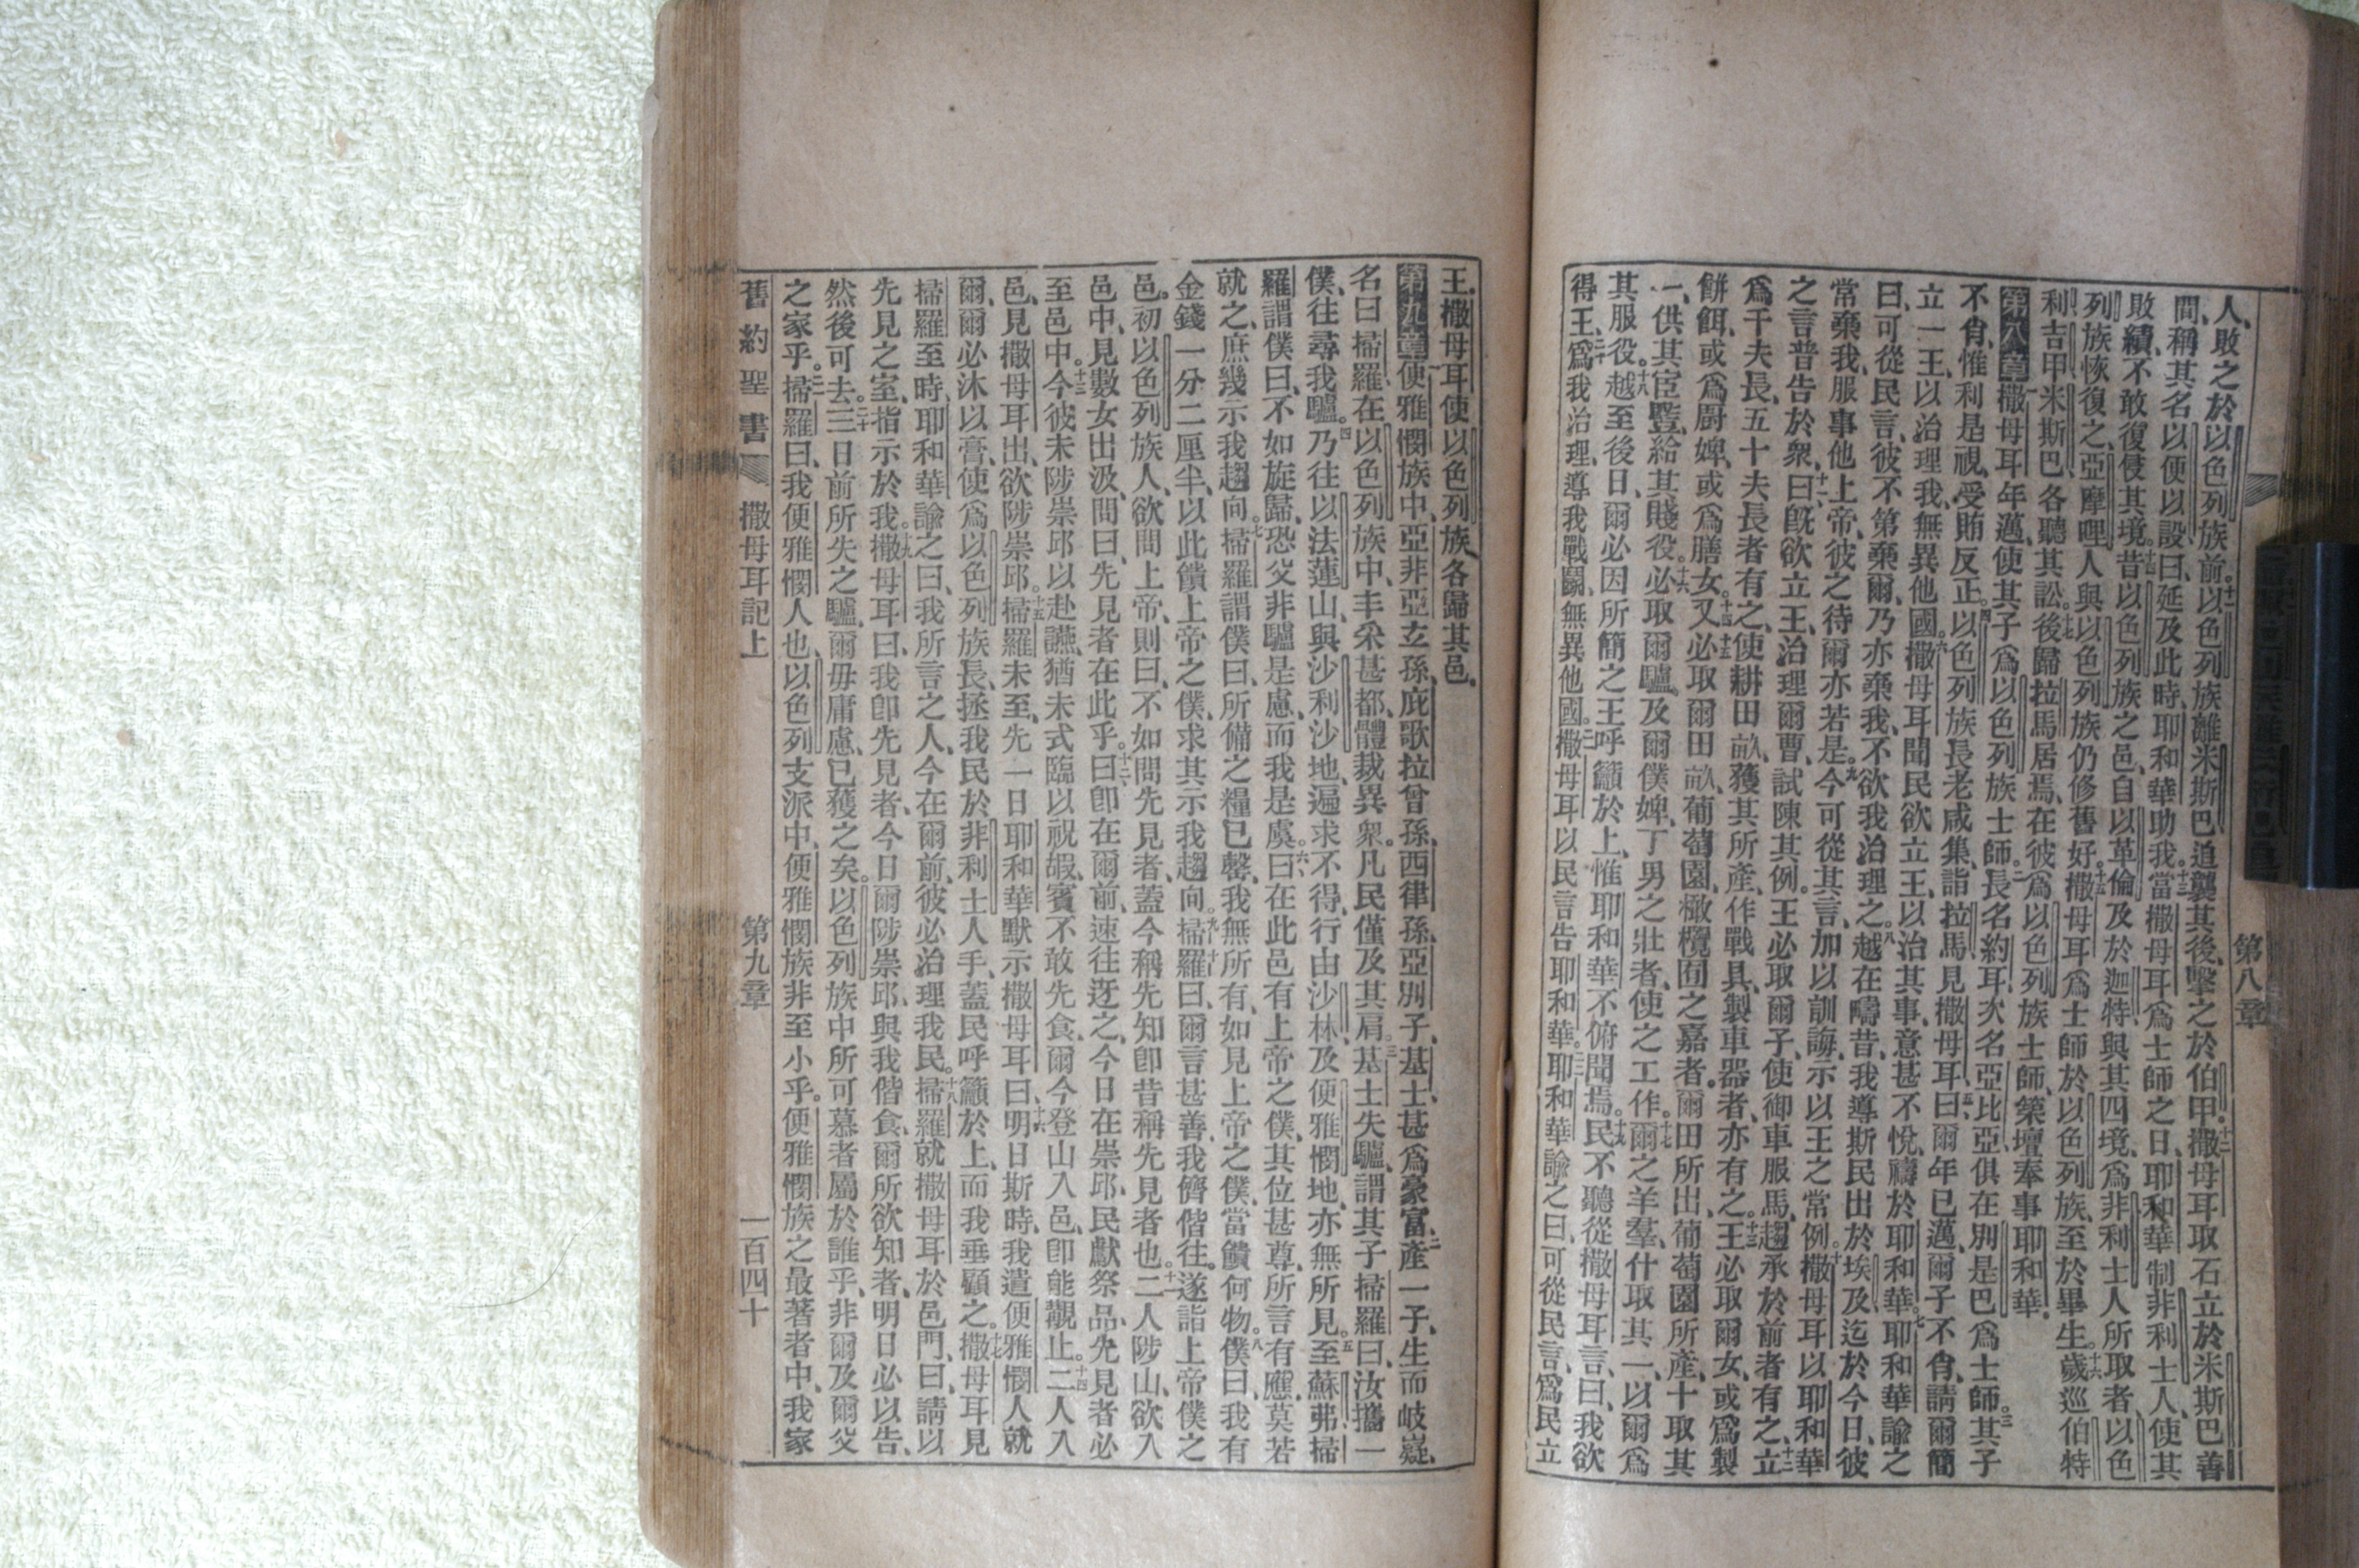 第八章
人、敗之於以色列族前。十一以色列族離米斯巴追襲其後、擊之於伯甲。十二撒母耳取石立於米斯巴善
間、稱其名以便以設曰、延及此時、耶和華助我。十三當撒母耳爲士師之日、耶和華制非利士人、使其
敗績、不敢復侵其境。十四昔以色列族之邑、自以革倫及於迦特、與其四境、爲非利士人所取者、以色
列族恢復之、亞摩哩人與以色列族仍修舊好。十五撒母耳爲士師於以色列族、至於畢生。十六歲巡伯特
利、吉甲、米斯巴、各聽其訟。十七後歸拉馬居焉、在彼爲以色列族士師、築壇奉事耶和華、
第八章一撒母耳年邁、使其子爲以色列族士師。二長名約耳、次名亞比亞、俱在別是巴爲士師。三其子
不肖、惟利是視、受賄反正。四以色列族長老咸集、詣拉馬、見撒母耳曰、五爾年已邁、爾子不肖、請爾簡
立一王、以治理我、無異他國。六撒母耳聞民欲立王、以治其事、意甚不悅、禱於耶和華。七耶和華諭之
曰、可從民言、彼不第棄爾、乃亦棄我、不欲我治理之。八越在疇昔、我導斯民出於埃及、迄於今日、彼
常棄我、服事他上帝、彼之待爾亦若是。九今可從其言、加以訓誨、示以王之常例。十撒母耳以耶和華
之言普告於衆、十一曰、旣欲立王、治理爾曹、試陳其例。王必取爾子、使御車服馬、趨承於前者有之、十二立
爲千夫長、五十夫長者有之、使耕田畝、穫其所產、作戰具、製車器者、亦有之。十三王必取爾女、或爲製
餅餌、或爲厨婢、或爲膳女。十四十五又必取爾田畝、葡萄園、橄欖囿之嘉者。爾田所出、葡萄園所產、十取其
一、供其宦豎、給其賤役。十六必取爾驢、及爾僕婢、丁男之壯者、使之工作。十七爾之羊羣、什取其一、以爾爲
其服役。十八越至後日、爾必因所簡之王呼籲於上、惟耶和華不俯聞焉。十九民不聽從撒母耳言、曰、我欲
得王、二十爲我治理、導我戰鬭、無異他國。二一撒母耳以民言告耶和華。二二耶和華諭之曰、可從民言、爲民立
王、撒母耳使以色列族各歸其邑、
第九章一便雅憫族中、亞非亞玄孫、庇歌拉曾孫、西律孫、亞別子、基士甚爲豪富、二產一子、生而岐嶷、
名曰掃羅、在以色列族中、丰采甚都、體裁異衆。凡民僅及其肩。三基士失驢、謂其子掃羅曰、汝攜一
僕、往尋我驢。四乃往以法蓮山、與沙利沙地、遍求不得、行由沙林、及便雅憫地、亦無所見。五至蘇弗、掃
羅謂僕曰、不如旋歸、恐父非驢是慮、而我是虞。六曰、在此邑有上帝之僕、其位甚尊、所言有應、莫若
就之、庶幾示我趨向。七掃羅謂僕曰、所備之糧已罄、我無所有、如見上帝之僕、當饋何物。八僕曰、我有
金錢一分二厘半、以此饋上帝之僕、求其示我趨向。九十掃羅曰、爾言甚善、我儕偕往。遂詣上帝僕之
邑。初以色列族人、欲問上帝、則曰、不如問先見者、蓋今稱先知卽昔稱先見者也。十一二人陟山、欲入
邑中、見數女出汲、問曰、先見者在此乎。十二曰、卽在爾前、速往迓之、今日在崇邱、民獻祭品、先見者必
至邑中。十三今彼未陟崇邱以赴讌、猶未式臨以祝嘏、賓不敢先食、爾今登山入邑、卽能覯止。十四二人入
邑、見撒母耳出、欲陟崇邱。十五掃羅未至、先一日耶和華默示撒母耳曰、十六明日斯時、我遣便雅憫人就
爾、爾必沐以膏、使爲以色列族長、拯我民於非利士人手、蓋民呼籲於上、而我垂顧之。十七撒母耳見
掃羅至時、耶和華諭之曰、我所言之人、今在爾前、彼必治理我民。十八掃羅就撒母耳於邑門、曰、請以
先見之室、指示於我。十九撒母耳曰、我卽先見者、今日爾陟崇邱、與我偕食、爾所欲知者、明日必以告、
然後可去。二十三日前所失之驢、爾毋庸慮、已獲之矣。以色列族中所可慕者屬於誰乎、非爾及爾父
之家乎。二一掃羅曰、我便雅憫人也、以色列支派中、便雅憫族非至小乎。便雅憫族之最著者中、我家
舊約聖書 撒母耳記上 第九章 一百四十